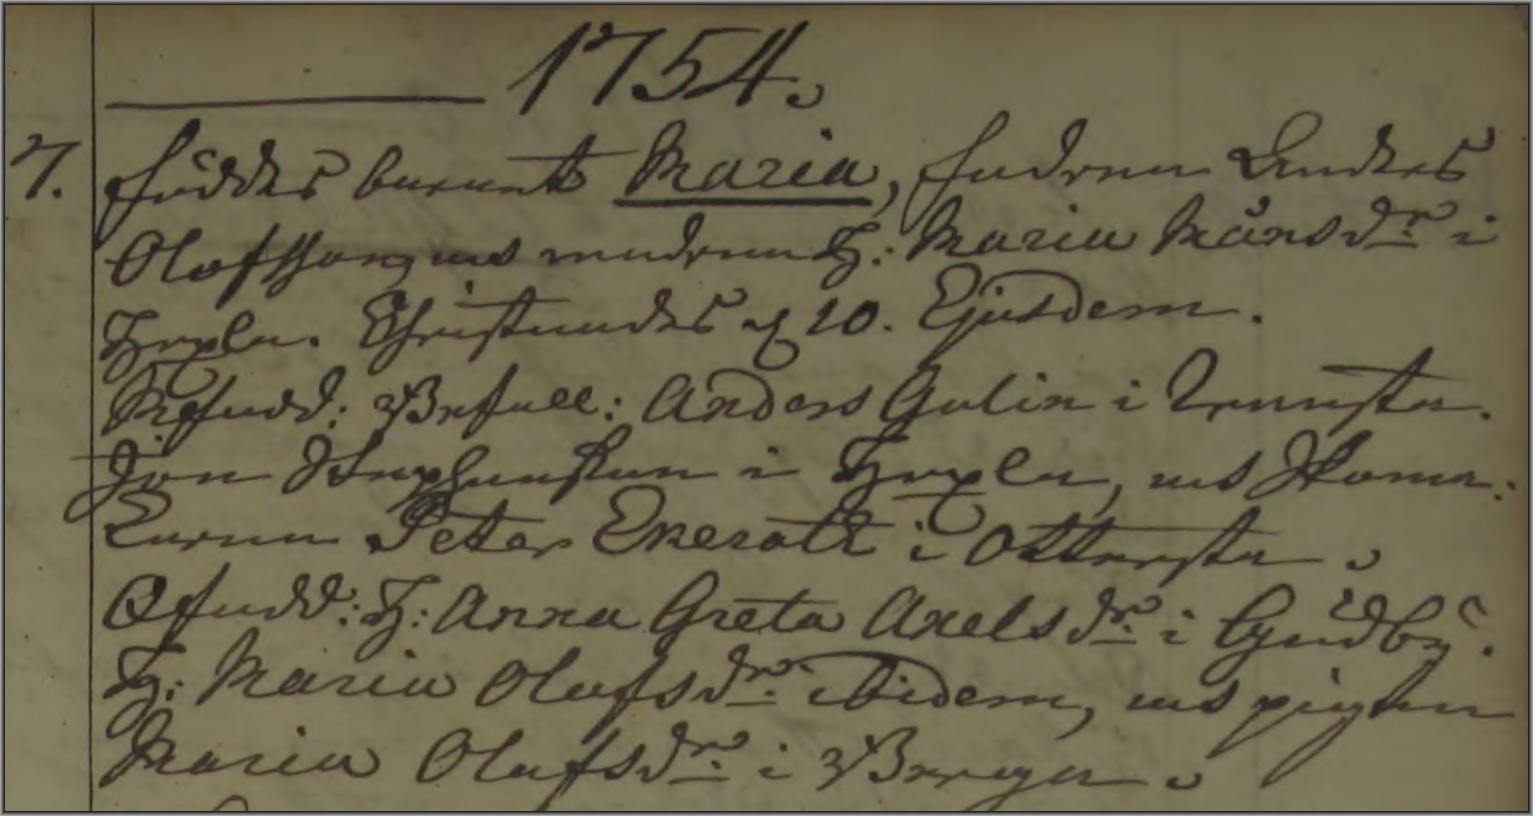 1754.
7. föddes barnet Maria, fadren Anders
Olofsson, och modren H: Maria Månsdr: i
Christnades d 10. Ejusdem.
Mfadd: Befall: Anders Gulin i
Jon Stephansson i och Skoma-
karen Peter Ekeroth i Ottersta.
Qfadd: H: Anna Greta Axelsdr: i
H: Maria Olofsdr: ibidem, och pigan
Maria Olofsdr: i Berga.